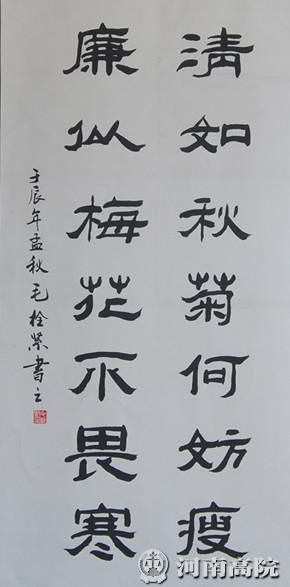 清如秋菊何妨瘦
廉似梅花不畏寒
壬辰年孟秋毛栓紧書之
河南高院